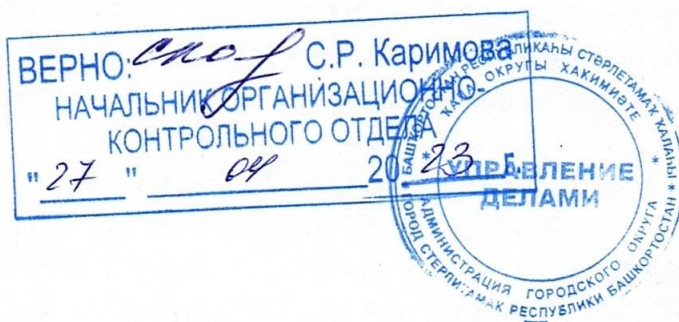 ВЕРНО: С.Р. Каримова
НАЧАЛЬНИК ОРГАНИЗАЦИОННО-
КОНТРОЛЬНОГО ОТДЕЛА
" 27 " 04 2023 г.
БАШҠОРТОСТАН РЕСПУБЛИКАҺЫ СТӘРЛЕТАМАҠ ҠАЛАҺЫ
ҠАЛА ОКРУГЫ ХАКИМИӘТЕ
УПРАВЛЕНИЕ
ДЕЛАМИ
АДМИНИСТРАЦИЯ ГОРОДСКОГО ОКРУГА
ГОРОД СТЕРЛИТАМАК РЕСПУБЛИКИ БАШКОРТОСТАН